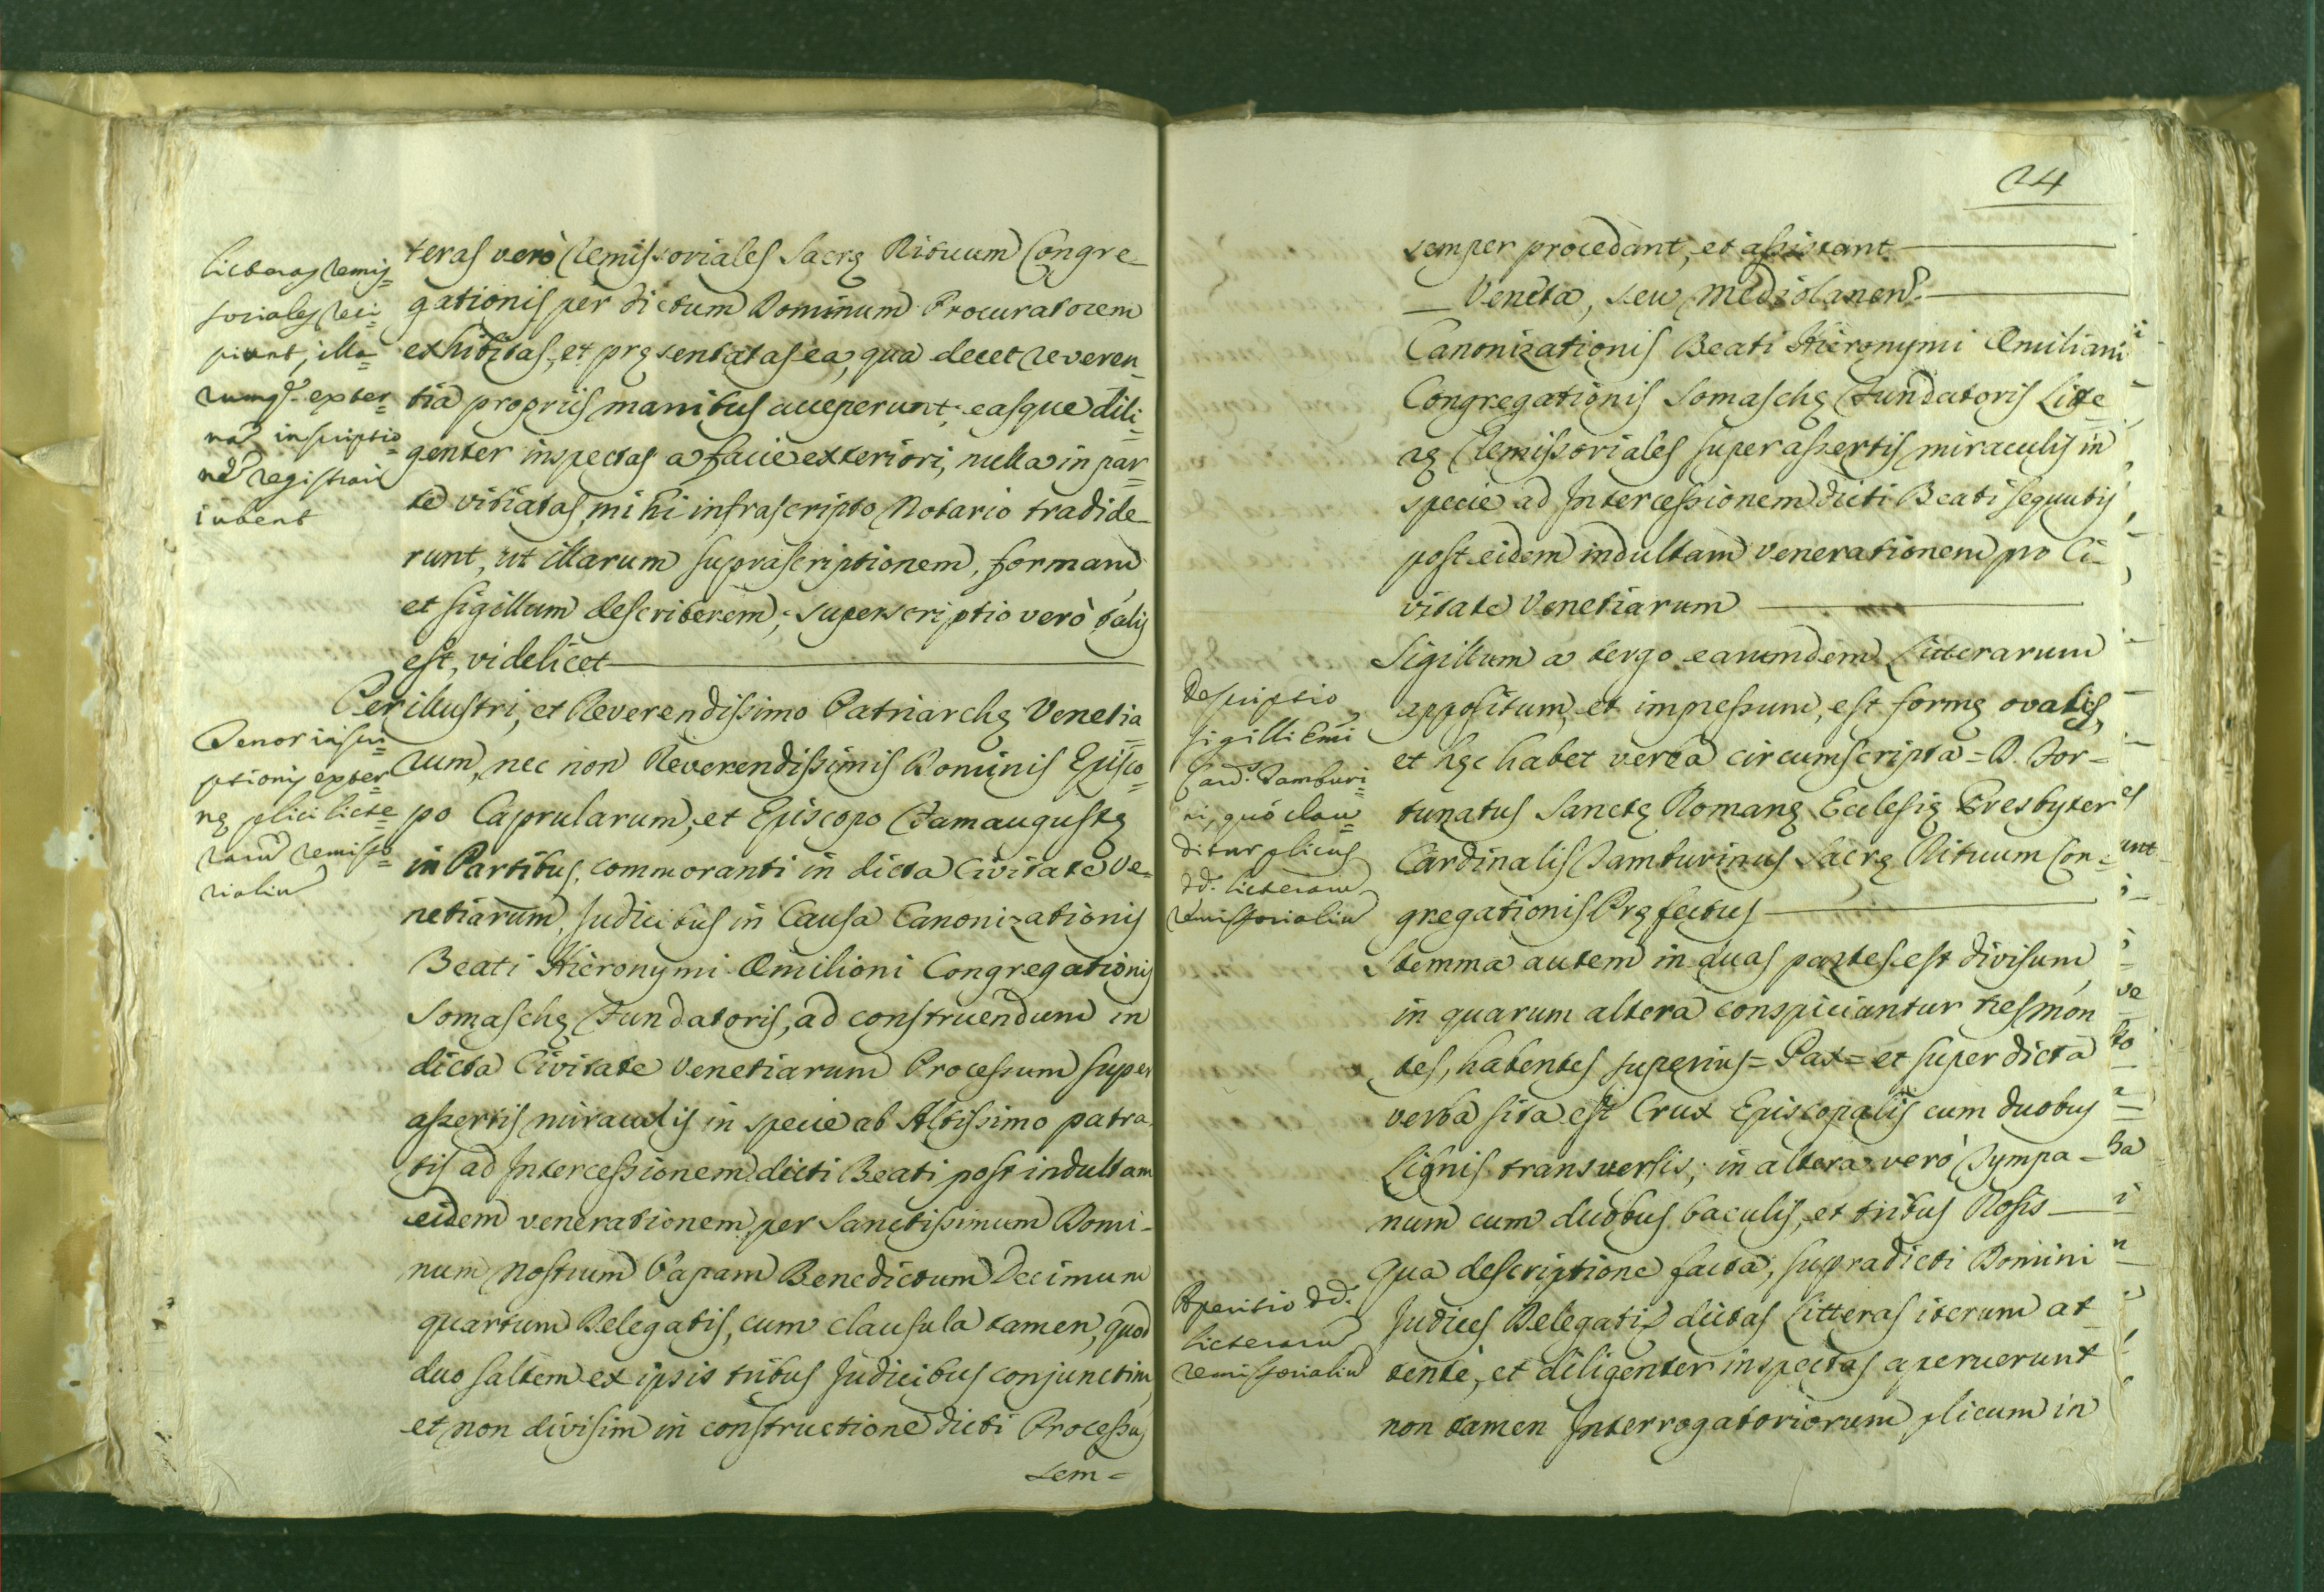 licteras remis=
soriales reci=
piunt, illa=
rumq. exter=
nã inscriptio=
nẽ registrari
iubent
teras verò Remissoriales Sacrę Rituum Congre-
gationis per dictum Dominum Procuratorem
exhibitas, et pręsentatas ea, qua decet reveren-
tia propriis manibus acceperunt; easque dili=
genter inspectas a facie exteriori, nulla in par=
te vitiatas mihi infrascripto Notario tradide-
runt, ut illarum suprascriptionem, formam
et sigillum describerem; superscriptio verò talis
est, videlicet
Tenor inscri=
ptionis exter=
nę plici licte=
rarũ remisso=
rialiũ
Perillustri, et Reverendissimo Patriarchę Venetia=
rum, nec non Reverendissimis Dominis Episco=
po Caprularum, et Episcopo Famaugustę
in Partibus, commoranti in dicta Civitate Ve=
netiarum, Judicibus in Causa Canonizationis
Beati Hieronymi Æmilioni Congregationis
Somaschę Fundatoris, ad construendum in
dicta Civitate Venetiarum Processum super
assertis miraculis in specie ab Altissimo patra
tis ad Intercessionem dicti Beati post indultam
eidem venerationem per Sanctissimum Domi-
num Nostrum Papam Benedictum Decimum
quartum Delegatis, cum clausula tamen, quod
duo saltem ex ipsis tribus Judicibus conjunctim,
et non divisim in constructione dicti Processus
sem=
24
semper procedant, et assistant
Veneta, seu Mediolanen.
Canonizationis Beati Hieronymi Æmiliani
Congregationis Somaschę Fundatoris Litte
rę Remissoriales super assertis miraculis in
specie ad Intercessionem dicti Beati sequutis
post eidem indultam venerationem pro Ci-
vitate Venetiarum
Descriptio
sigilli Emi
Card. Tamburi=
ni, quó clau=
ditur plicus
dd. licterarũ
remissorialiũ
Sigillum a tergo earumdem Litterarum
appositum, et impressum, est formę ovalis,
et hęc habet verba circumscripta = D. For=
tunatus Sanctę Romanę Ecclesię Presbyter
Cardinalis Tamburinus Sacrę Rituum Con=
gregationis Pręfectus
Stemma autem in duas partes est divisum,
in quarum altera conspiciantur tres mon
tes, habentes superius = Pax = et super dicta
verba sita est Crux Episcopalis cum duobus
Lignis transversis; in altera verò Tympa-
num cum duobus baculis, et tribus Rosis
Apertio dd.
licterarũ
remissorialiũ
Qua descriptione facta, supradicti Domini
Judices Delegati dictas Litteras iterum at
tentè, et diligenter inspectas aperuerunt
non tamen Interrogatoriorum plicum in